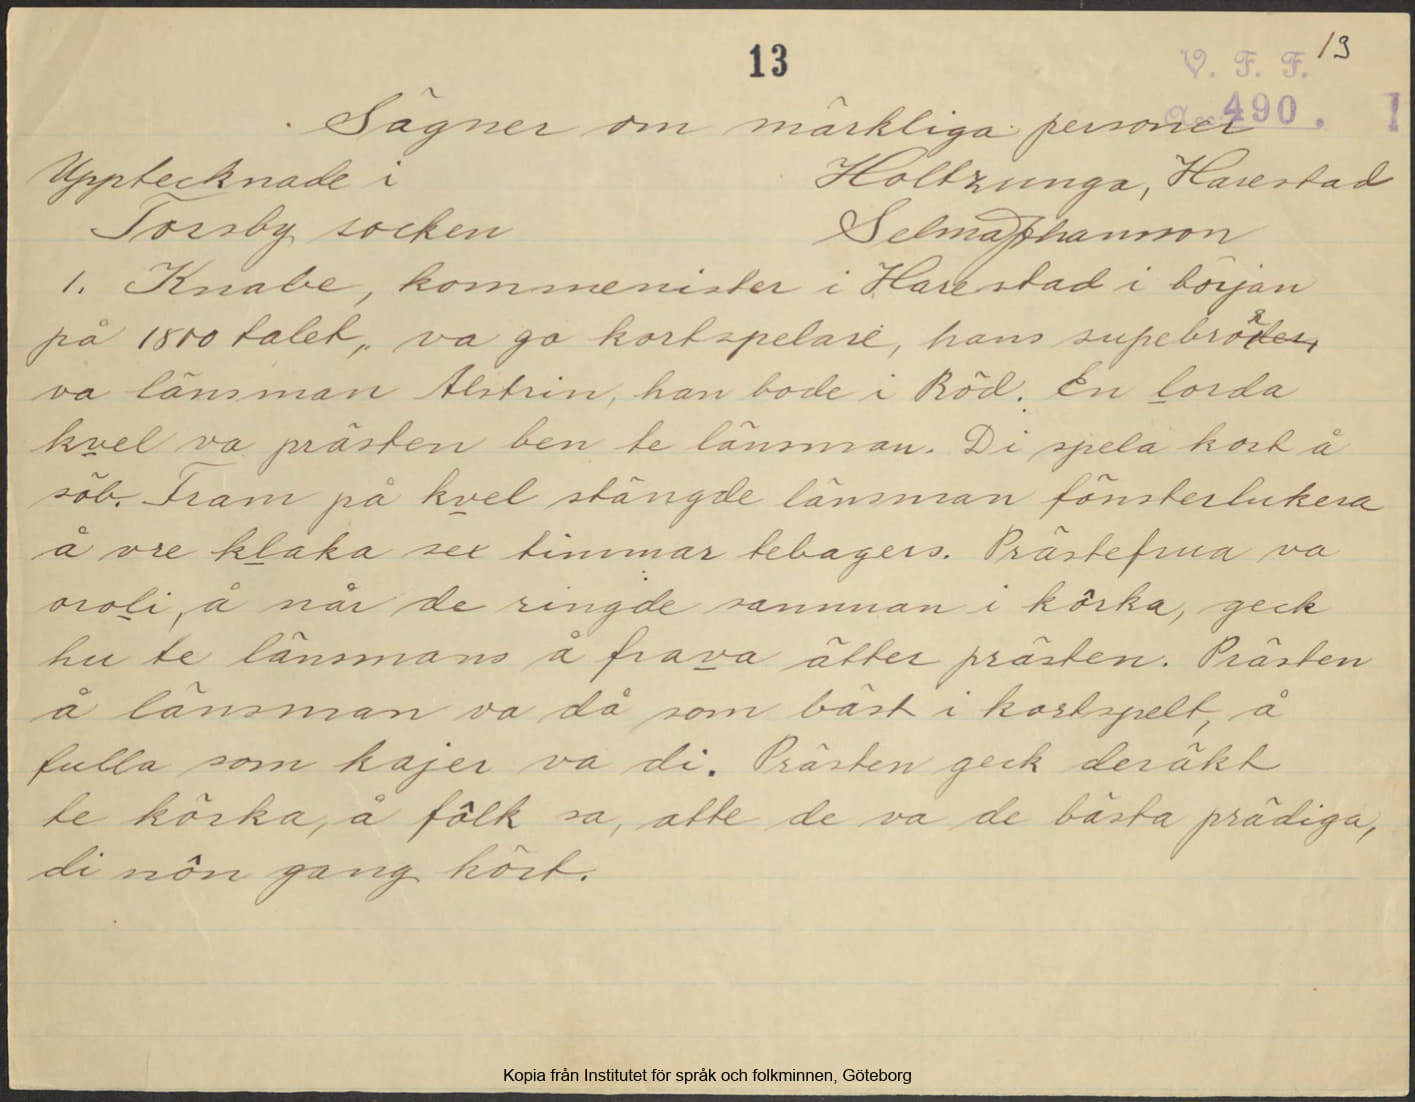 13
13
V. F. F.
490. 1
Sägner om märkliga personer
Upptecknade i Holtzunga, Harestad
Torsby socken Selma Johansson
1. Knabe, kommenister i Harestad i början
på 1800 talet, va go kortspelare, hans supebrör
va länsman Alstrin, han bode i Röd. En lorda
kvel va prästen ben te länsman. Di spela kort å
söb. Fram på kvel stängde länsman fönsterlukera
å vre klaka sex timmar tebagers. Prästefrua va
oroli, å når de ringde samman i kôrka, geck
hu te länsmans å frava ätter prästen. Prästen
å länsman va då som bäst i kortspelt, å
fulla som kajer va di. Prästen geck deräkt
te körka, å fôlk sa, atte de va de bästa prädiga,
di nôn gang hört.
Kopia från Institutet för språk och folkminnen, Göteborg